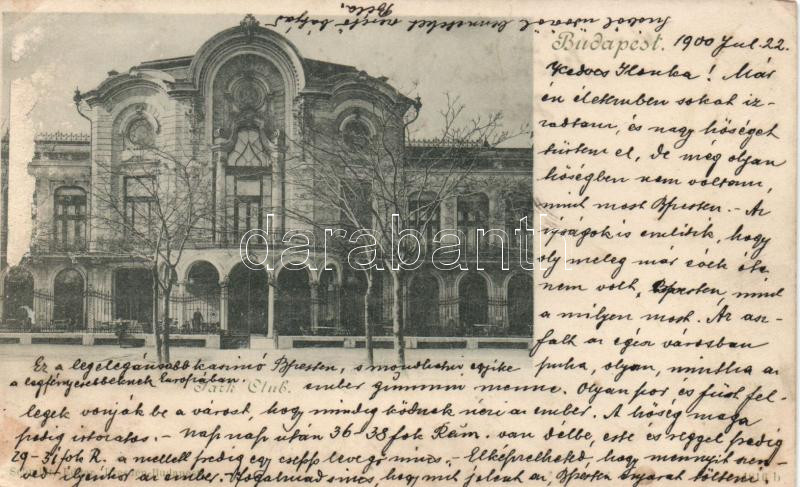 Budapest. 1900 Jul. 22.
Kedves Ilonka! Már
én életemben sokat iz-
zadtam, és nagy hőséget
tűrtem el, de még olyan
hőségben nem voltam,
mint most Bpesten. - Az
ujságok is emlitik, hogy
oly meleg már sok éve
nem volt Bpesten, mint
a milyen most. Az asz-
falt az egész városban
puha, olyan, mintha az
Ez a legelegánsabb kasinó Bpesten, s mondhatni egyike
a legfényesebbeknek Európában.
Park Club.
ember gummin menne. Olyan por és füst fel-
legek vonják be a várost, hogy mindig ködnek nézi az ember. A hőség maga
pedig istonatos. - Nap nap után 36-38 fok Réam. van délbe, este és reggel pedig
29-31 fok R. a mellett pedig egy csepp levegő nincs. - Elképzelheted hogy mennyit szen-
ved ilyenkor az ember. Fogalmad sincs, hogy mit jelent az Bpesten nyarat tölteni
csókol
Béla
darabanth